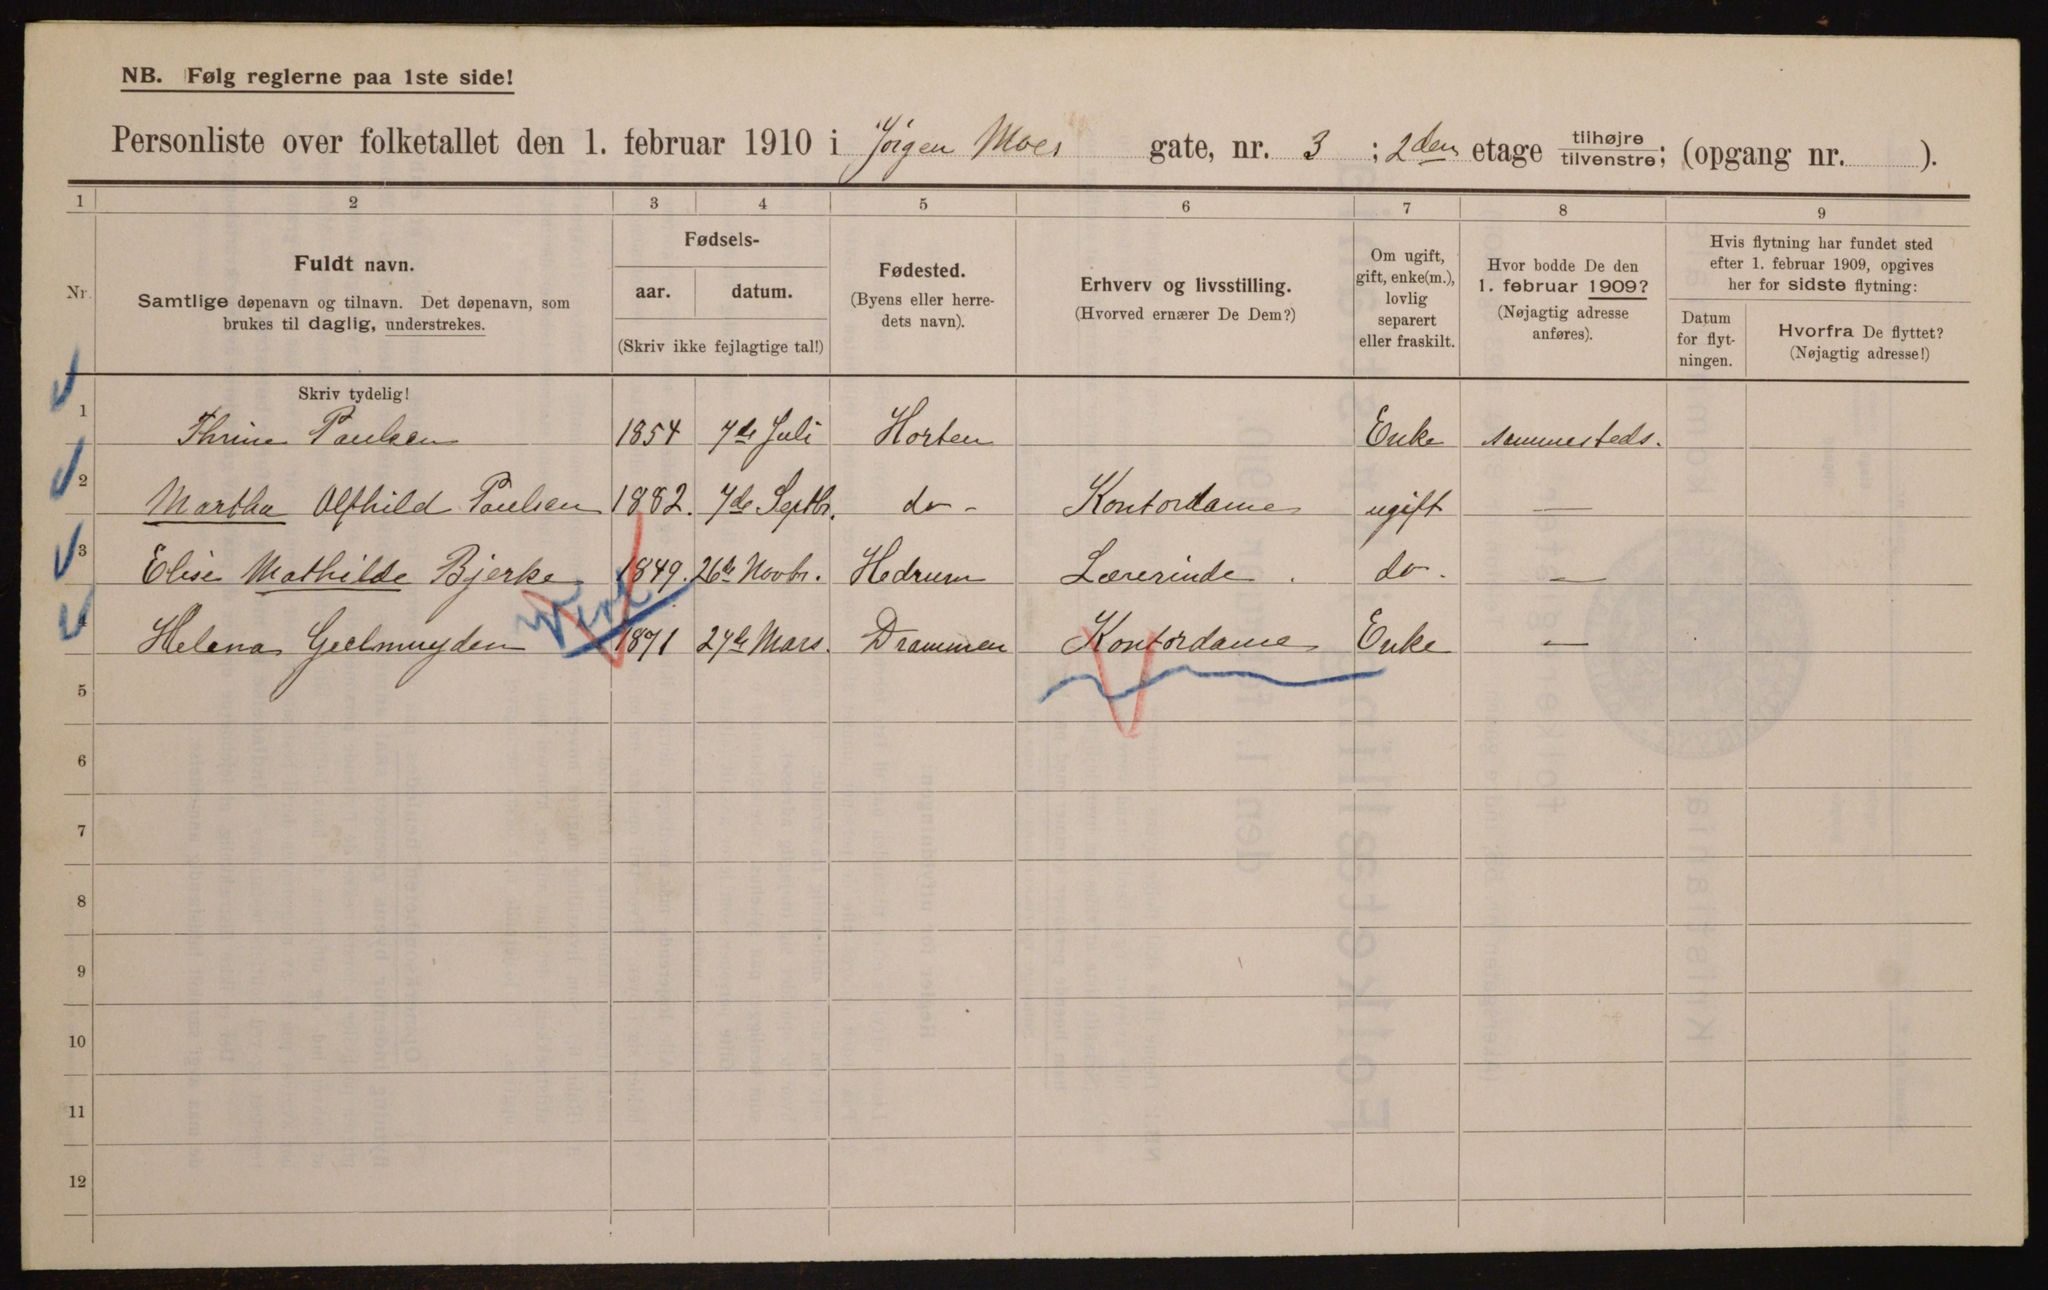 NB. Følg reglerne paa 1ste side!
Personliste over folketallet den 1. februar 1910 i Jørgen Moes gate, nr. 3 ; 2den etage tilhøjre/tilvenstre; (opgang nr. ).
1 2 3 4 5 6 7 8 9
Nr.
Fuldt navn.
Samtlige døpenavn og tilnavn. Det døpenavn, som
brukes til daglig, understrekes.
Fødsels-
aar. datum.
(Skriv ikke fejlagtige tal!)
Fødested.
(Byens eller herre-
dets navn).
Erhverv og livsstilling.
(Hvorved ernærer De Dem?)
Om ugift,
gift, enke(m.),
lovlig
separert
eller fraskilt.
Hvor bodde De den
1. februar 1909?
(Nøjagtig adresse
anføres).
Hvis flytning har fundet sted
efter 1. februar 1909, opgives
her for sidste flytning:
Datum
for flyt-
ningen.
Hvorfra De flyttet?
(Nøjagtig adresse!)
Skriv tydelig!
1 Thrine Paulsen 1854 7de Juli Horten Enke sammesteds.
2 Martha Alfhild Paulsen 1882. 7de Septbr. do - Kontordame ugift —
3 Elise Mathilde Bjerke 1849. 26de Novbr. Hedrum Lærerinde . do. —
4 Helena Geelmuyden 1871 27de Mars. Drammen Kontordame Enke —
5
6
7
8
9
10
11
12